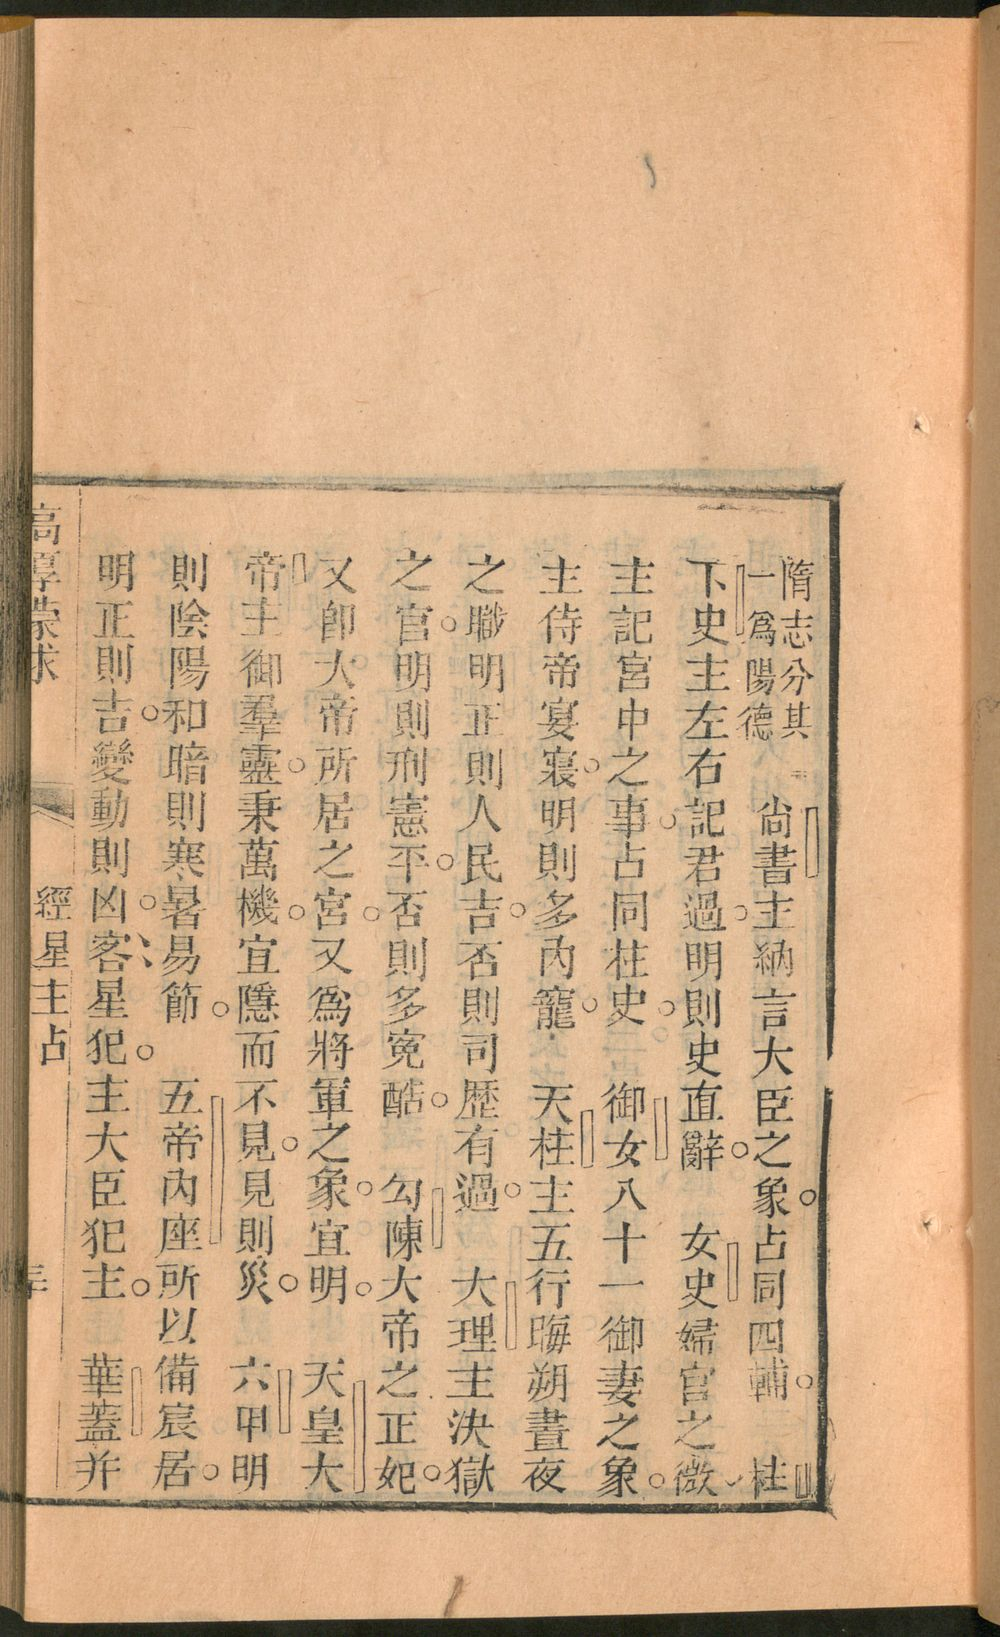 隋志分其
一為陽德
尙書主納言大臣之象占同四輔　柱
下史主左右記君過明則史直辭　女史婦官之微
主記宮中之事占同柱史　御女八十一御妻之象
主侍帝宴寢明則多內寵　天柱主五行晦朔晝夜
之職明正則人民吉否則司歷有過　大理主決獄
之官明則刑憲平否則多冤酷　勾陳大帝之正妃
又卽大帝所居之宮又為將軍之象宜明　天皇大
帝主御羣靈秉萬機宜隱而不見見則災　六甲明
則陰陽和暗則寒暑易節　五帝內座所以備宸居
明正則吉變動則凶客星犯主大臣犯主　華蓋并
高厚蒙求
經星主占